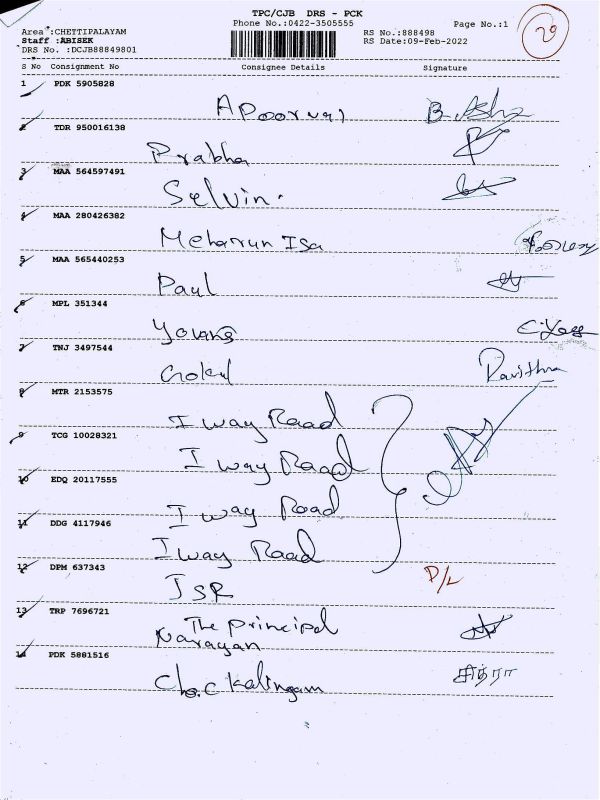 TPC/CJB DRS - PCK
Phone No.:0422-3505555
Page No.:1
20
Area :CHETTIPALAYAM
Staff :ABISEK
DRS No. :DCJB88849801
RS No.:888498
RS Date:09-Feb-2022
S No Consignment No Consignee Details Signature
1 PDK 5905828
Apoorva B. Asha
2 TDR 950016138
Prabha
3 MAA 564597491
Selvin.
4 MAA 280426382
Meharun Isa
5 MAA 565440253
Paul
6 MPL 351344
7 TNJ 3497544
Gokul Pavithra
8 MTR 2153575
I way Raad
9 TCG 10028321
I way Raad
10 EDQ 20117555
I way Road
11 DDG 4117946
I way Raad
12 DPM 637343 D/L
JSR
13 TRP 7696721
The principal
Narayan
14 PDK 5881516
Chockalingam சித்ரா